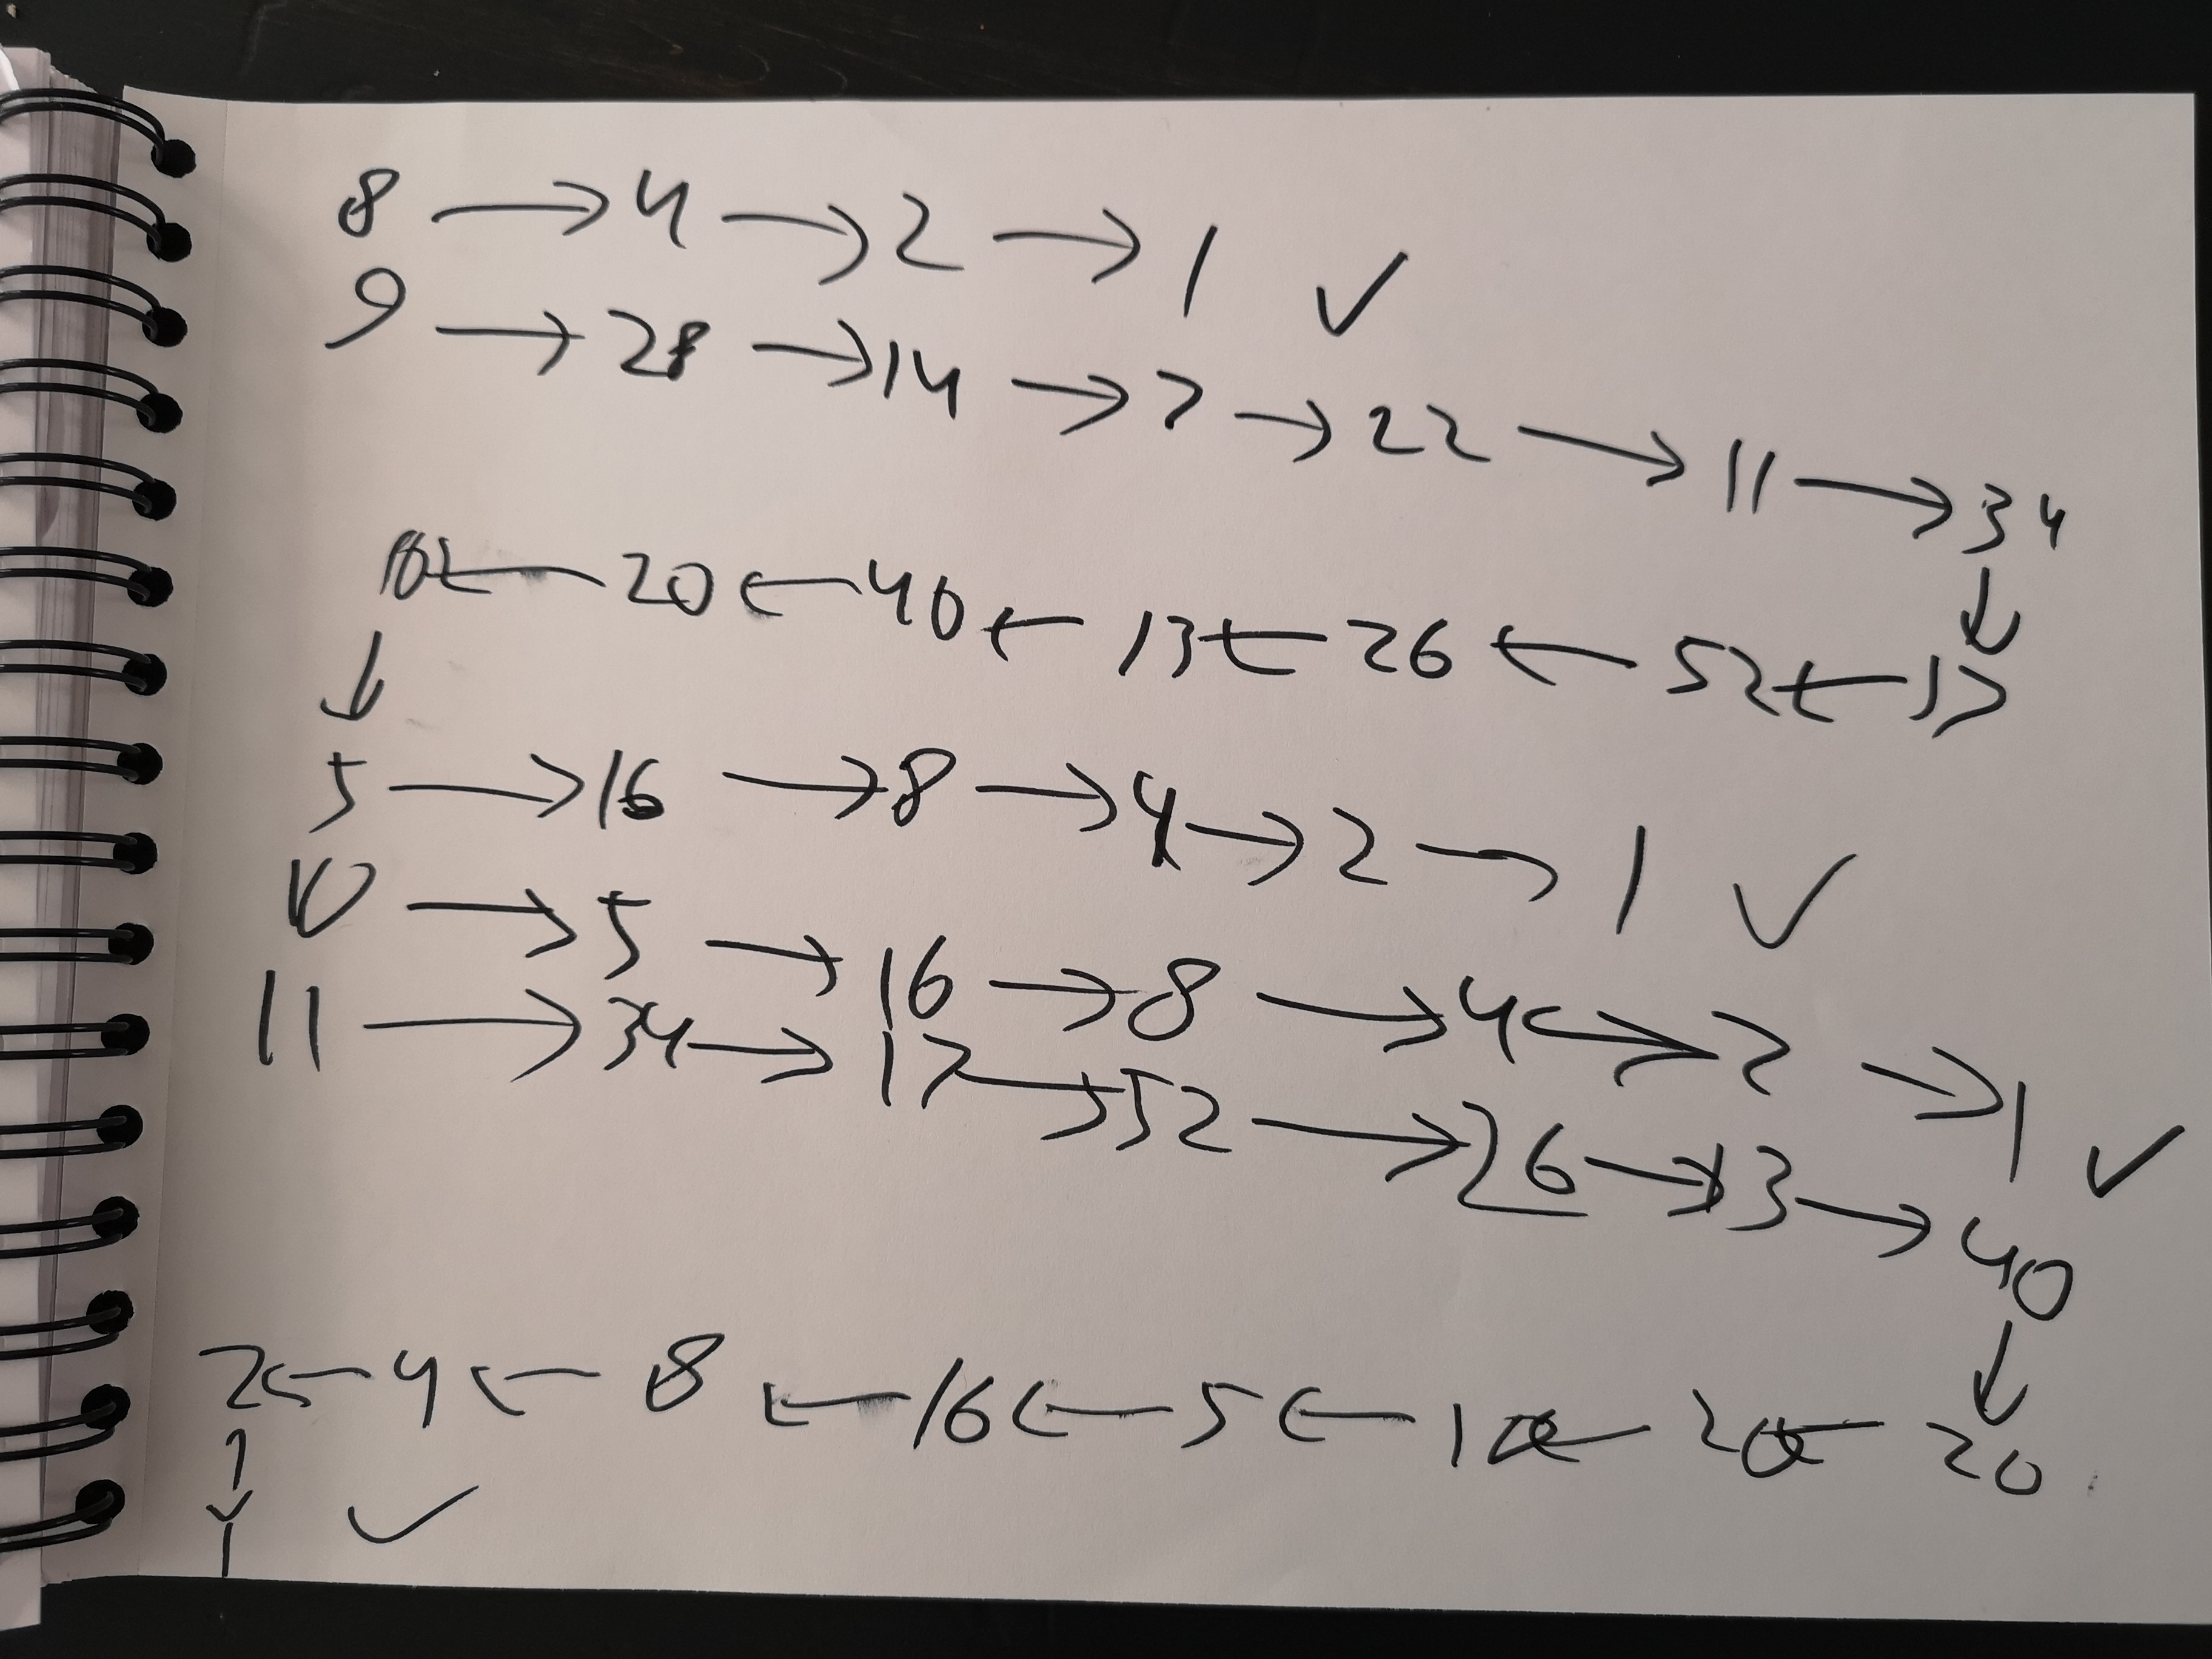 8 → 4 → 2 → 1 ✓
9 → 28 → 14 → 7 → 22 → 11 → 34
↓
10 ← 20 ← 40 ← 13 ← 26 ← 52 ← 17
↓
5 → 16 → 8 → 4 → 2 → 1 ✓
10 → 5 → 16 → 8 → 4 → 2 → 1 ✓
11 → 34 → 17 → 52 → 26 → 13 → 40
↓
2 ← 4 ← 8 ← 16 ← 5 ← 10 ← 20 ← 20
↓
1 ✓